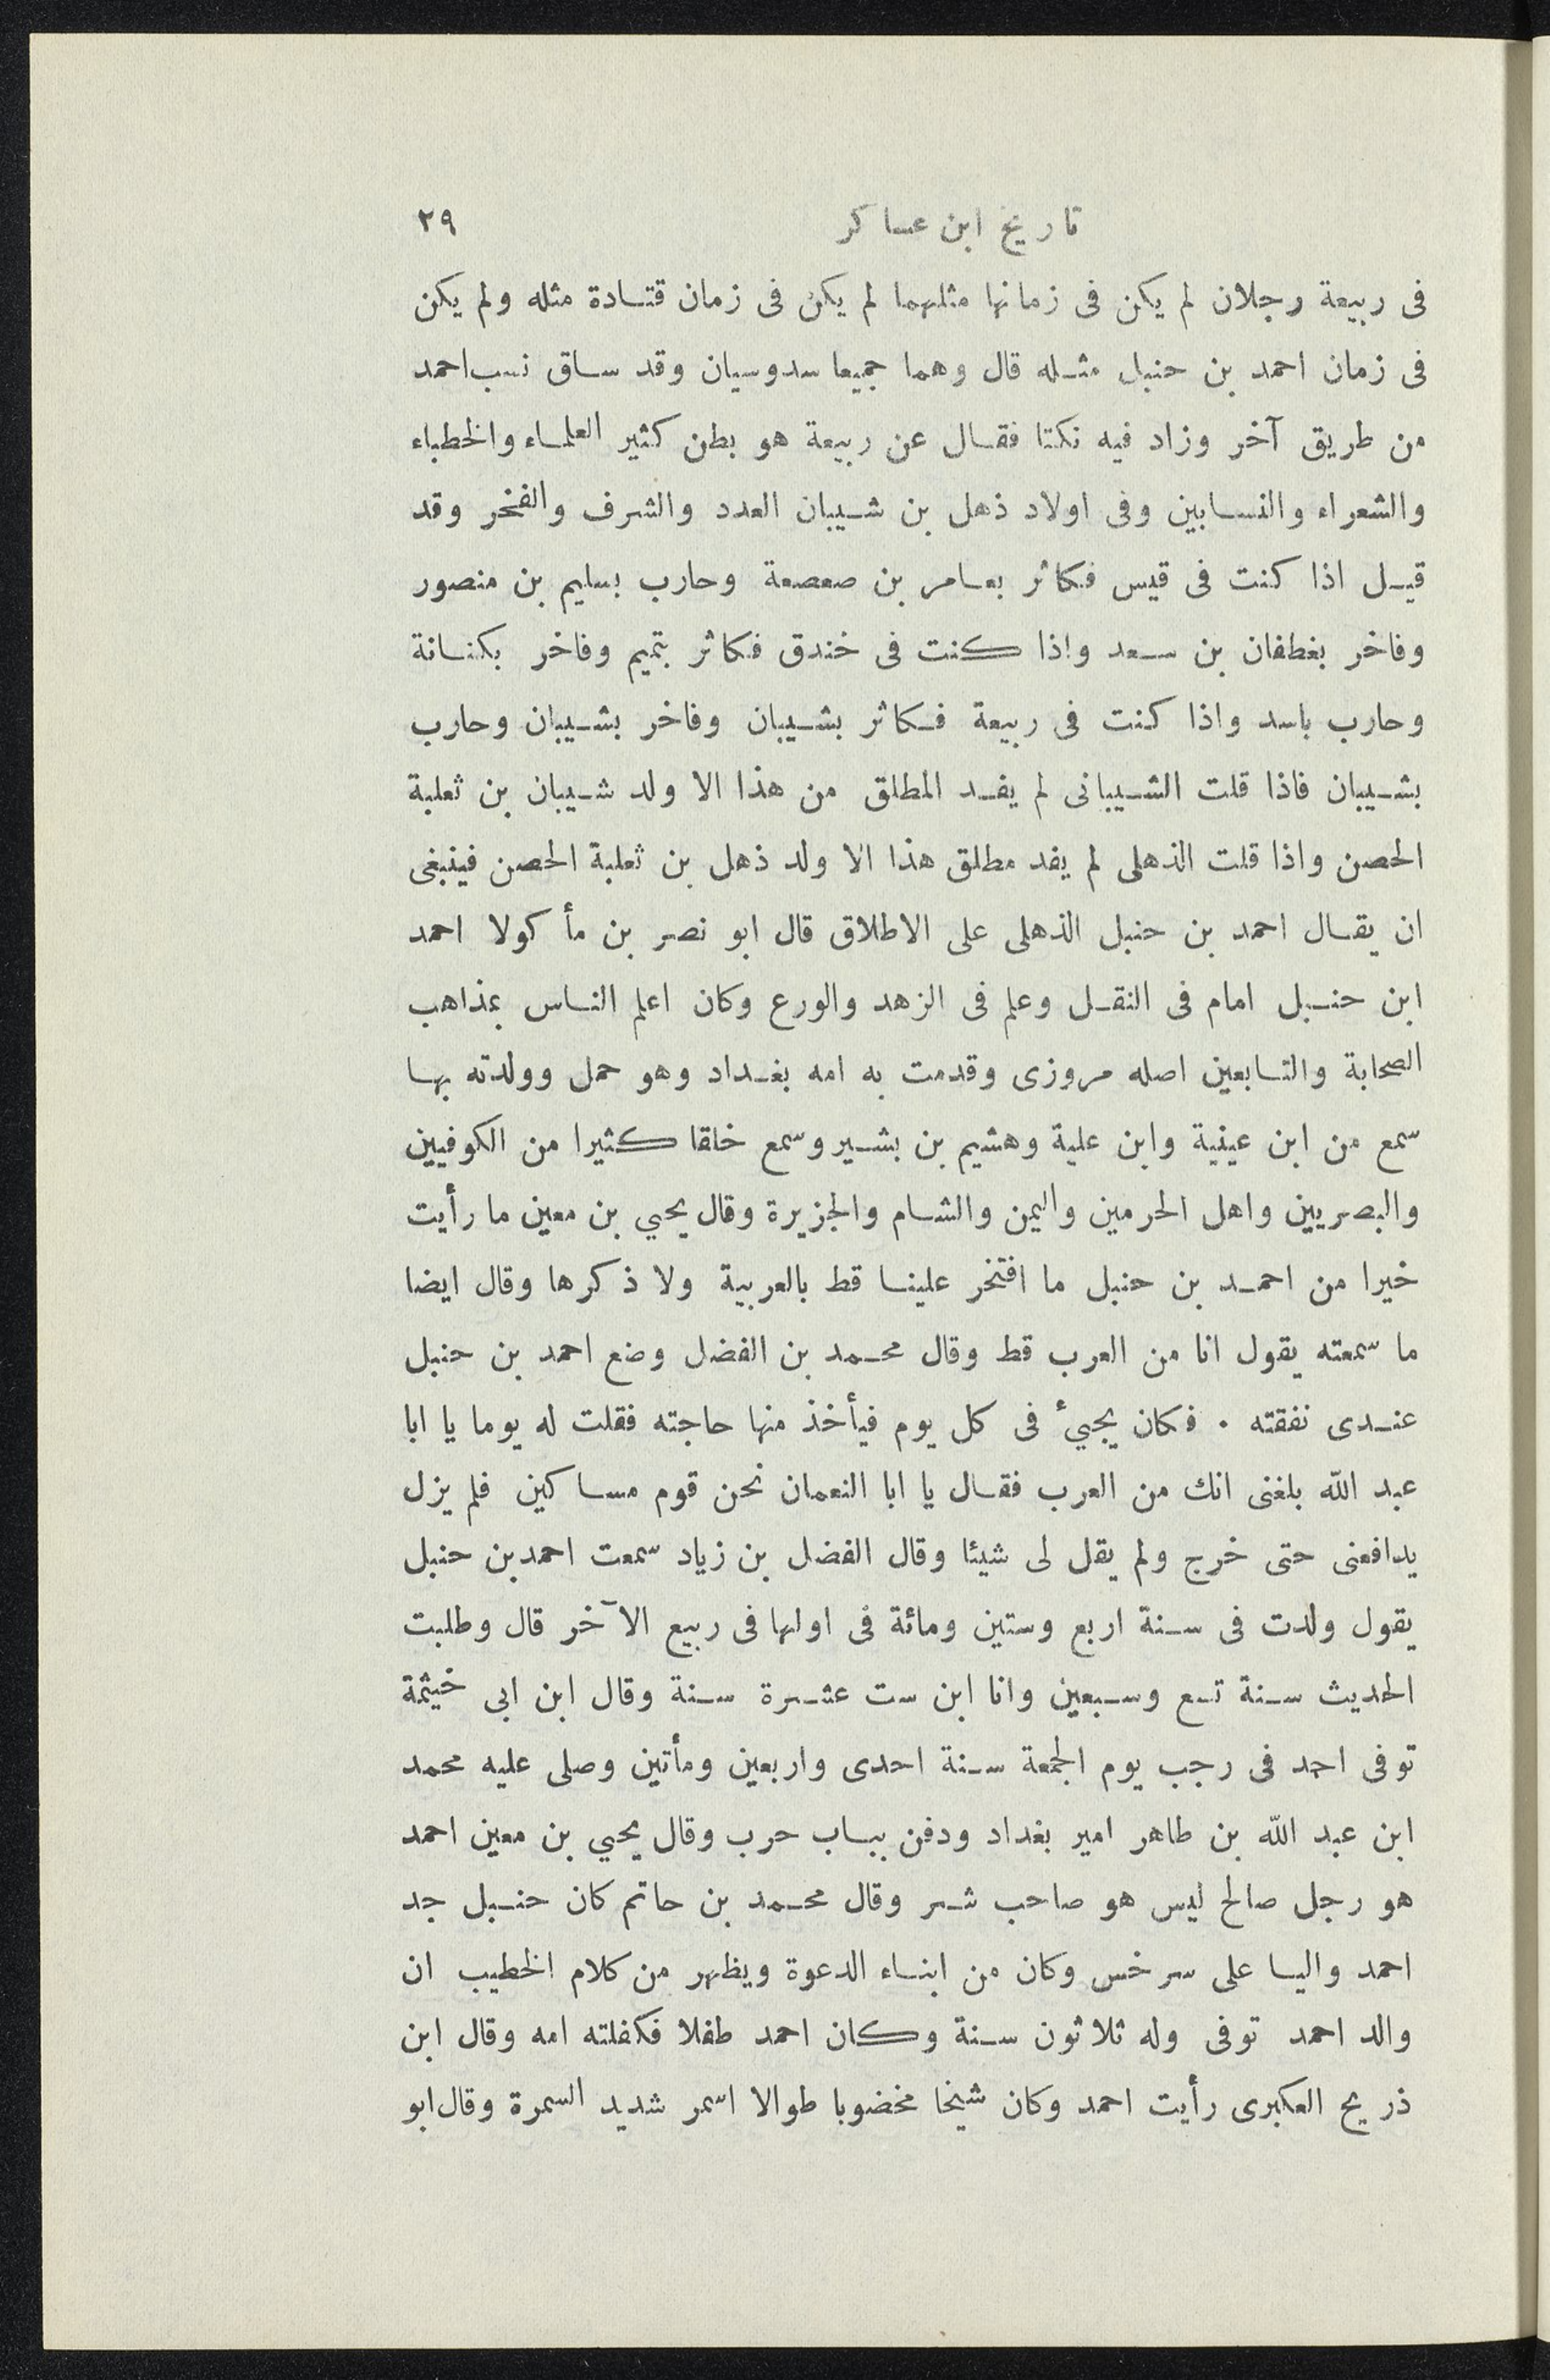 تاريخ ابن عساكر
٢٩
فى ربيعة رجلان لم يكن فى زمانها مثلهما لم يكن فى زمان قتادة مثله ولم يكن
فى زمان احمد بن حنبل مثله قال وهما جميعا سدوسيان وقد ساق نسب احمد
من طريق آخر وزاد فيه نكتا فقال عن ربيعة هو بطن كثير العلماء والخطباء
والشعراء والنسابين وفى اولاد ذهل بن شيبان العدد والشرف والفخر وقد
قيل اذا كنت فى قيس فكاثر بعامر بن صعصعة وحارب بسليم بن منصور
وفاخر بغطفان بن سعد واذا كنت فى خندق فكاثر بتميم وفاخر بكنانة
وحارب باسد واذا كنت فى ربيعة فكاثر بشيبان وفاخر بشيبان وحارب
بشيبان فاذا قلت الشيبانى لم يفد المطلق من هذا الا ولد شيبان بن ثعلبة
الحصن واذا قلت الذهلى لم يفد مطلق هذا الا ولد ذهل بن ثعلبة الحصن فينبغى
ان يقال احمد بن حنبل الذهلى على الاطلاق قال ابو نصر بن مأكولا احمد
ابن حنبل امام فى النقل وعلم فى الزهد والورع وكان اعلم الناس بمذاهب
الصحابة والتابعين اصله مروزى وقدمت به امه بغداد وهو حمل وولدته بها
سمع من ابن عينية وابن علية وهشيم بن بشير وسمع خلقا كثيرا من الكوفيين
والبصريين واهل الحرمين واليمن والشام والجزيرة وقال يحيي بن معين ما رأيت
خيرا من احمد بن حنبل ما افتخر علينا قط بالعربية ولا ذكرها وقال ايضا
ما سمعته يقول انا من العرب قط وقال محمد بن الفضل وضع احمد بن حنبل
عندى نفقته . فكان يجيئ فى كل يوم فيأخذ منها حاجته فقلت له يوما يا ابا
عبد الله بلغنى انك من العرب فقال يا ابا النعمان نحن قوم مساكين فلم يزل
يدافعنى حتى خرج ولم يقل لى شيئا وقال الفضل بن زياد سمعت احمد بن حنبل
يقول ولدت فى سنة اربع وستين ومائة فى اولها فى ربيع الآخر قال وطلبت
الحديث سنة تسع وسبعين وانا ابن ست عشرة سنة وقال ابن ابى خيثمة
توفى احمد فى رجب يوم الجمعة سنة احدى واربعين ومأتين وصلى عليه محمد
ابن عبد الله بن طاهر امير بغداد ودفن بباب حرب وقال يحيي بن معين احمد
هو رجل صالح ليس هو صاحب شر وقال محمد بن حاتم كان حنبل جد
احمد واليا على سرخس وكان من ابناء الدعوة ويظهر من كلام الخطيب ان
والد احمد توفى وله ثلاثون سنة وكان احمد طفلا فكفلته امه وقال ابن
ذريح العكبرى رأيت احمد وكان شيخا مخضوبا طوالا اسمر شديد السمرة وقال ابو